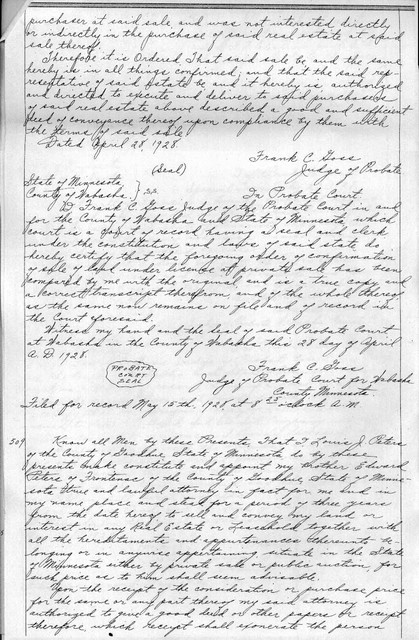 purchaser at said sale and was not interested directly
or indirectly in the purchase of said real estate at said
sale thereof.
Therefore it is Ordered That said sale be and the same
hereby is in all things confirmed, and that the said rep-
resentative of said Estate be and it hereby is authorized
and directed to execute and deliver to said purchasers
of said real estate above described a good and sufficient
deed of conveyance thereof upon compliance by them with
the terms of said sale.
Dated April 28, 1928.
Frank C. Goss
(Seal) Judge of Probate
State of Minnesota,
County of Wabasha. } S.S. In Probate Court.
I, Frank C. Goss Judge of the Probate Court in and
for the County of Wabasha and State of Minnesota, which
court is a Court of record having a seal and clerk
under the constitution and laws of said state do
hereby certify that the foregoing order of confirmation
of sale of land under license at private sale has been
compared by me with the original, and is a true copy and
a correct transcript therefrom, and of the whole thereof
as the same now remains on file and of record in
the Court aforesaid.
Witness my hand and the seal of said Probate Court
at Wabasha in the County of Wabasha this 28 day of April
A.D. 1928.
PROBATE COURT SEAL
Frank C. Goss
Judge of Probate Court for Wabasha
County Minnesota.
Filed for record May 15th, 1928 at 8 o'clock A.M.
509 Know all Men by these Presents, That I Louis J. Peters
of the County of Goodhue, State of Minnesota do by these
presents make constitute and appoint my brother Edward
Peters of Frontenac of the County of Goodhue, State of Minne-
sota true and lawful attorney in fact for me and in
my name place and stead for a period of three years
from the date hereof to sell and convey any land or
interest in any Real Estate or Leasehold together with
all the hereditaments and appurtenances thereunto be-
longing or in anywise appertaining situate in the State
of Minnesota either by private sale or public auction, for
such price as to him shall seem advisable.
Upon the receipt of the consideration or purchase price
for the same or any part thereof my said attorney is
authorized to give a good deed or other papers or receipt
therefore which receipt shall exonerate the person